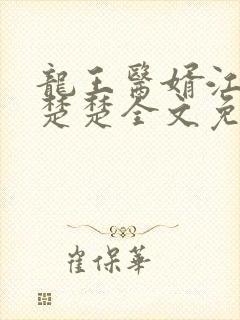 龍王醫婿江
楚楚全文免
崔保華